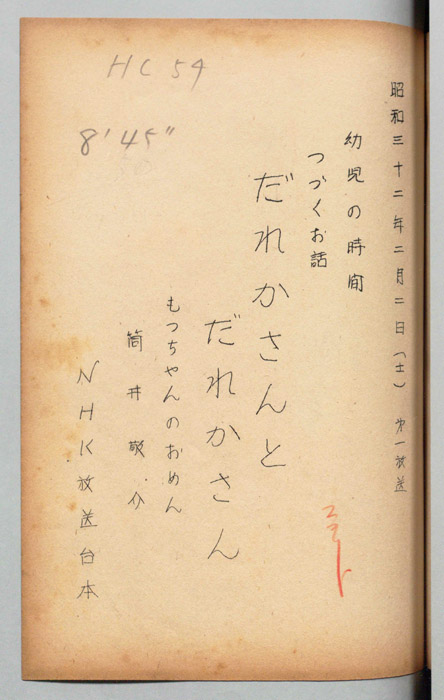 昭和三十二年二月二日(土) 第一放送
幼児の時間
つづくお話
だれかさんと
だれかさん
もつちゃんのおめん
筒井敬介
NHK放送台本
HC 54
8'45"